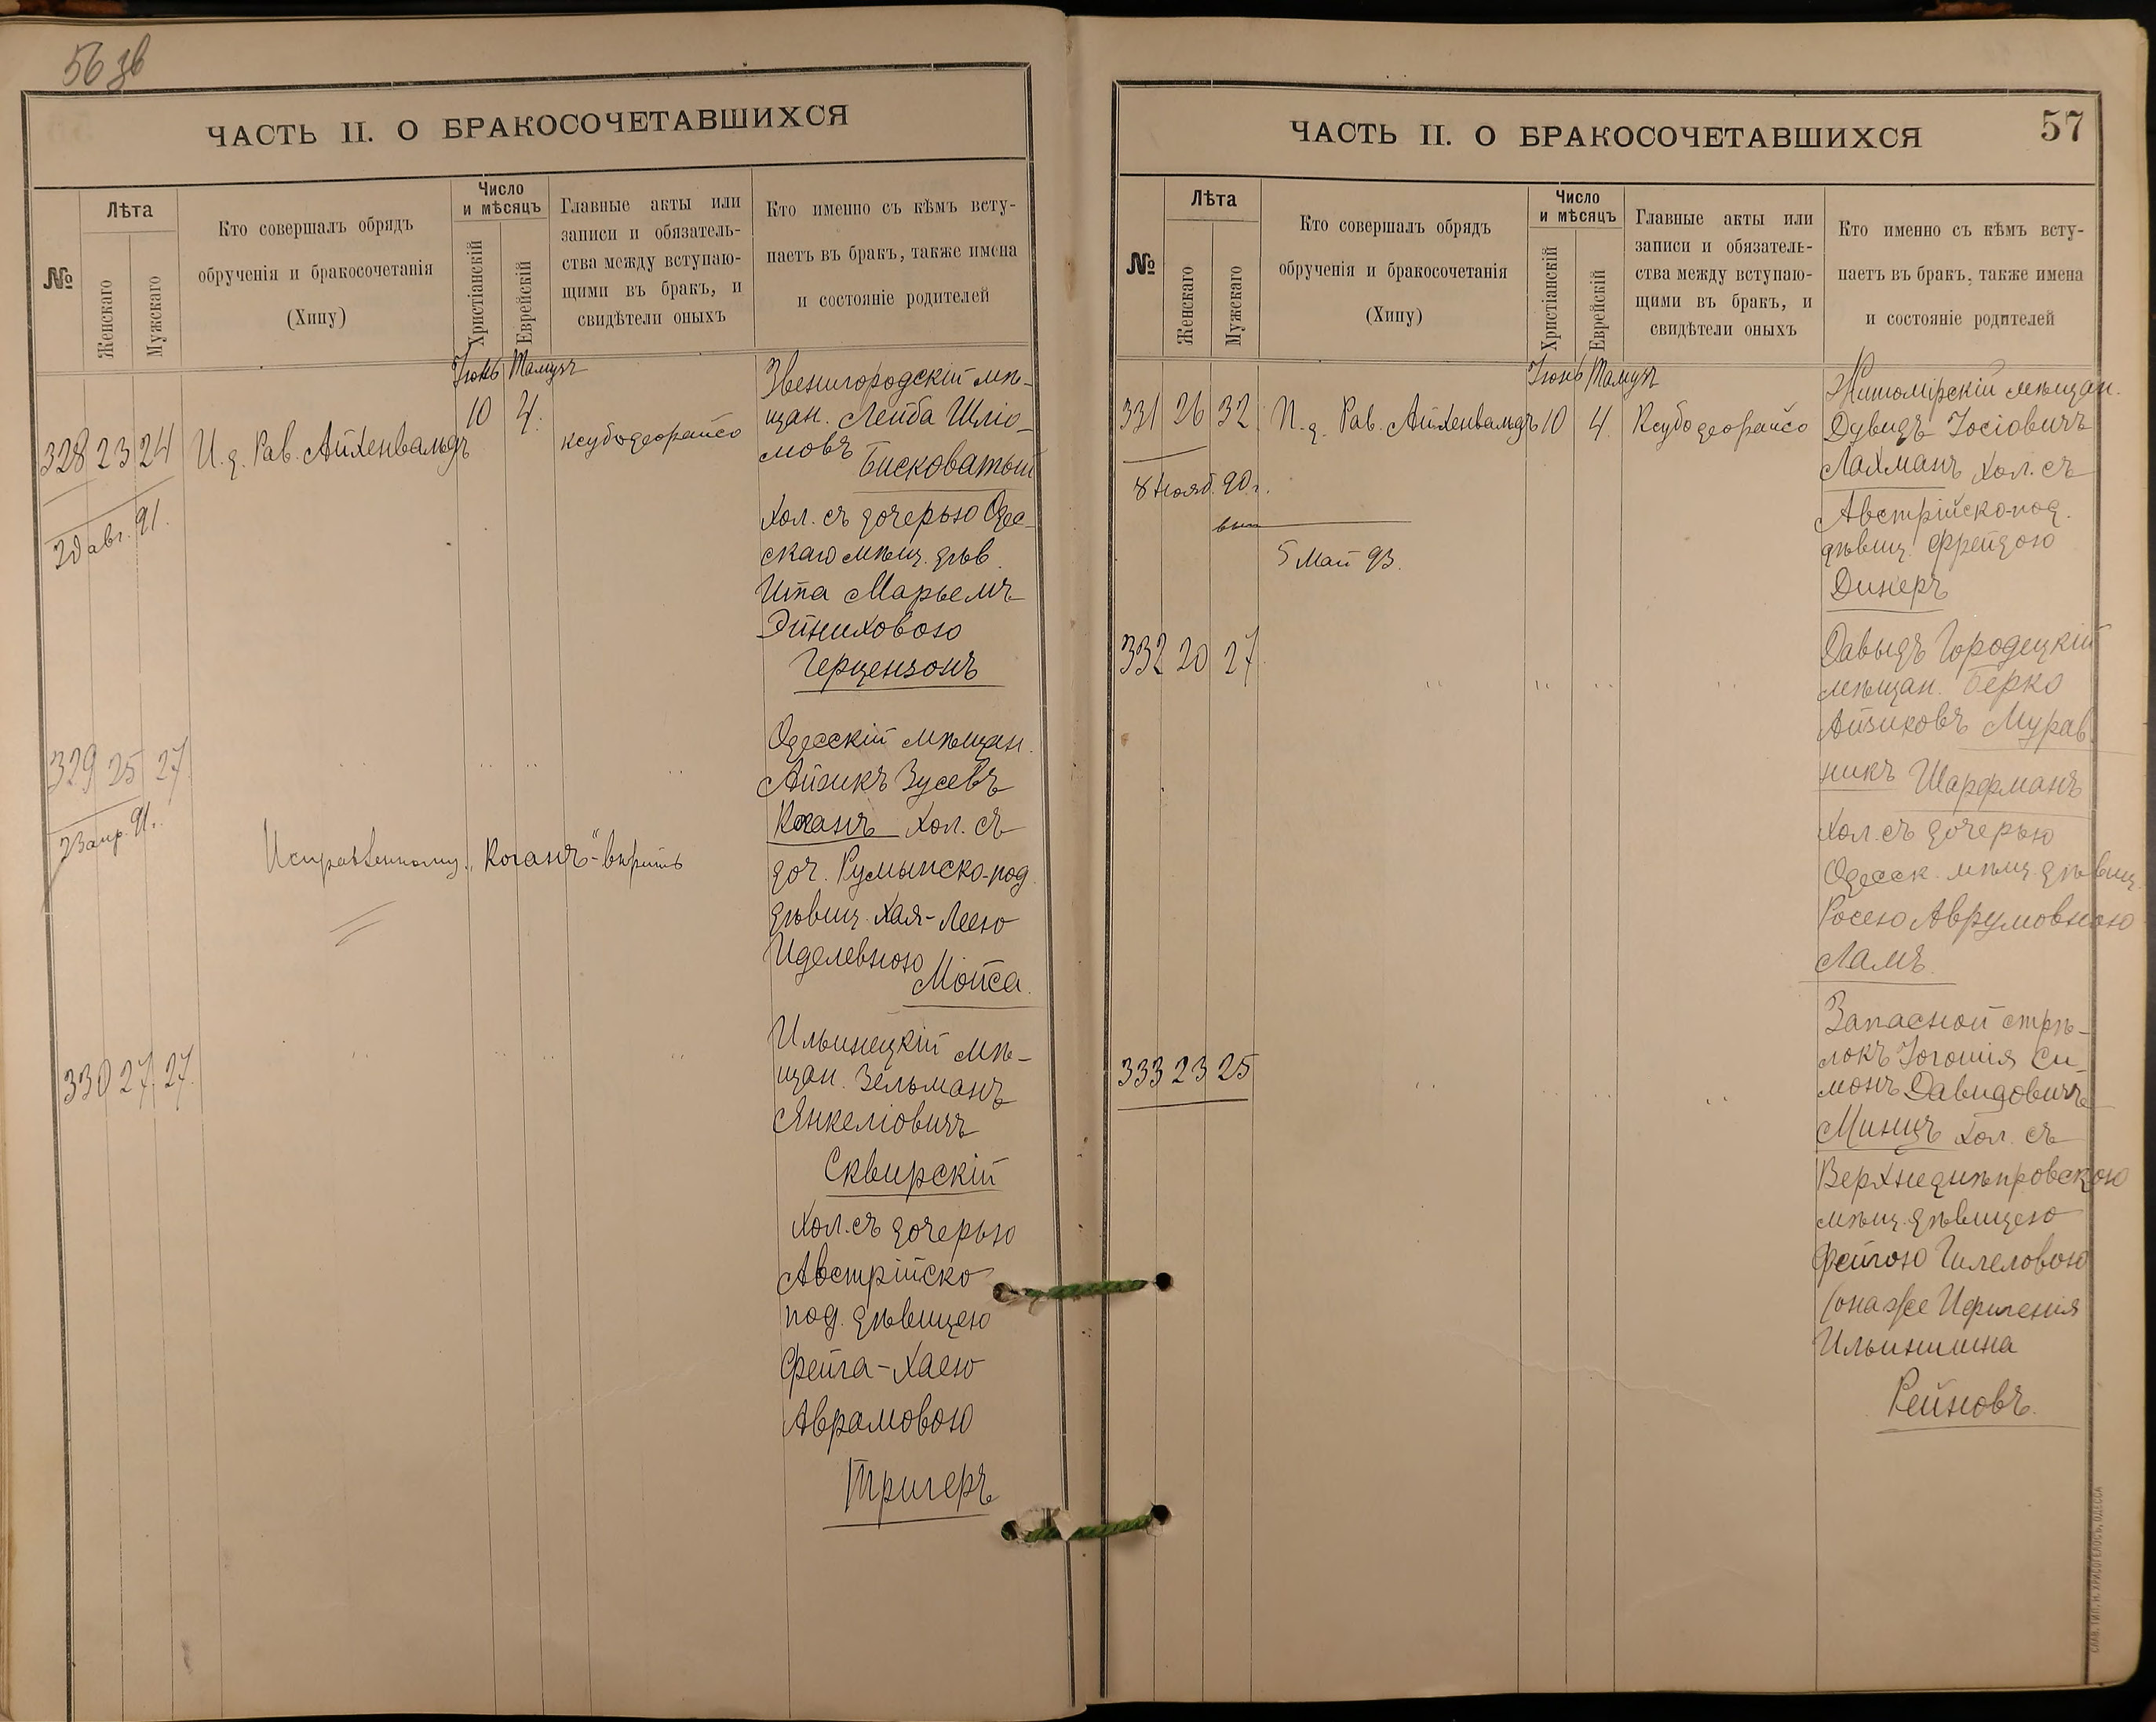 56 зв
ЧАСТЬ II. О БРАКОСОЧЕТАВШИХСЯ
№
Лѣта
Женскаго
Мужскаго
Кто совершалъ обрядъ
обрученія и бракосочетанія
(Хипу)
Число
и мѣсяцъ
Христіанскій
Еврейскій
Главные акты или
записи и обязатель-
ства между вступаю-
щими въ бракъ, и
свидѣтели оныхъ
Кто именно съ кѣмъ всту-
паетъ въ бракъ, также имена
и состояніе родителей
Іюнь Тамузъ
328 23 24 И. д. Рав. Айхенвальдъ 10 4. ксубодеорайсо
20 авг. 91.
Звенигородскій мѣ-
щан. Лейба Шліо-
мовъ
Бисковатый
Хол. съ дочерью Одес-
скаго мѣщ. дѣв.
Ита Марьемъ
Эйниховою
Герцензонъ
329 25 27 " " " "
23 апр. 91 г.
Исправленному „Коганъ“ вѣрить
Одесскій мѣщан.
Айзикъ Зусевъ
Коганъ Хол. съ
доч. Румынско-под.
дѣвиц. Хая-Леею
Иделевною
Мойса.
330 27 27. " " " "
Ильинецкій мѣ-
щан. Зельманъ
Янкеліовичъ
Сквирскій
Хол. съ дочерью
Австрійско
под. дѣвицею
Фейга-Хаею
Аврамовою
Тригеръ
57
ЧАСТЬ II. О БРАКОСОЧЕТАВШИХСЯ
№
Лѣта
Женскаго
Мужскаго
Кто совершалъ обрядъ
обрученія и бракосочетанія
(Хипу)
Число
и мѣсяцъ
Христіанскій
Еврейскій
Главные акты или
записи и обязатель-
ства между вступаю-
щими въ бракъ, и
свидѣтели оныхъ
Кто именно съ кѣмъ всту-
паетъ въ бракъ, также имена
и состояніе родителей
Іюнь Тамузъ
331 26 32. И. д. Рав. Айхенвальдъ 10 4. Ксубодеорайсо
8 Нояб. 90 г.
вып
5 Май 93.
Житомірскій мѣщан.
Дувидъ Іосіовичъ
Лахманъ Хол. съ
Австрійско-под.
дѣвиц. Фрейдою
Динеръ
332 20 27. " " " "
Давыдъ Городецкій
мѣщан. Берко
Айзиковъ Мурав
никъ Шарфманъ
Хол. съ дочерью
Одесск. мѣщ. дѣвиц.
Росею Аврумовною
Ламъ.
333 23 25 " " " "
Запасной стрѣ-
локъ Іогошія Си-
монъ Давидовичъ
Минцъ Хол. съ
Верхнеднѣпровскою
мѣщ. дѣвицею
Фейгою Гилеловою
(она же Ифигенія
Ильинишна
Рейновъ.
СЛАВ. ТИП. Н. ХРИСОГЕЛОСЪ, ОДЕССА